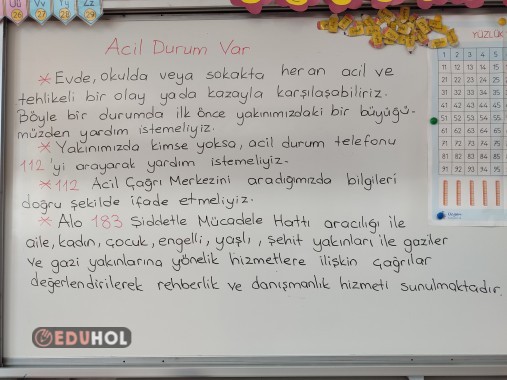 Üü Vv Yy Zz
26 27 28 29
Acil Durum Var
* Evde, okulda veya sokakta her an acil ve
tehlikeli bir olay yada kazayla karşılaşabiliriz.
Böyle bir durumda ilk önce yakınımızdaki bir büyüğü-
müzden yardım istemeliyiz.
* Yakınımızda kimse yoksa, acil durum telefonu
112'yi arayarak yardım istemeliyiz.
* 112 Acil Çağrı Merkezini aradığımızda bilgileri
doğru şekilde ifade etmeliyiz.
* Alo 183 Şiddetle Mücadele Hattı aracılığı ile
aile, kadın, çocuk, engelli, yaşlı, şehit yakınları ile gaziler
ve gazi yakınlarına yönelik hizmetlere ilişkin çağrılar
değerlendirilerek rehberlik ve danışmanlık hizmeti sunulmaktadır.
YÜZLÜK
1 2 3 4 5
11 12 13 14 15
21 22 23 24 25
31 32 33 34 35
41 42 43 44 45
51 52 53 54 55
61 62 63 64 65
71 72 73 74 75
81 82 83 84 85
91 92 93 94 95
EDUHOL